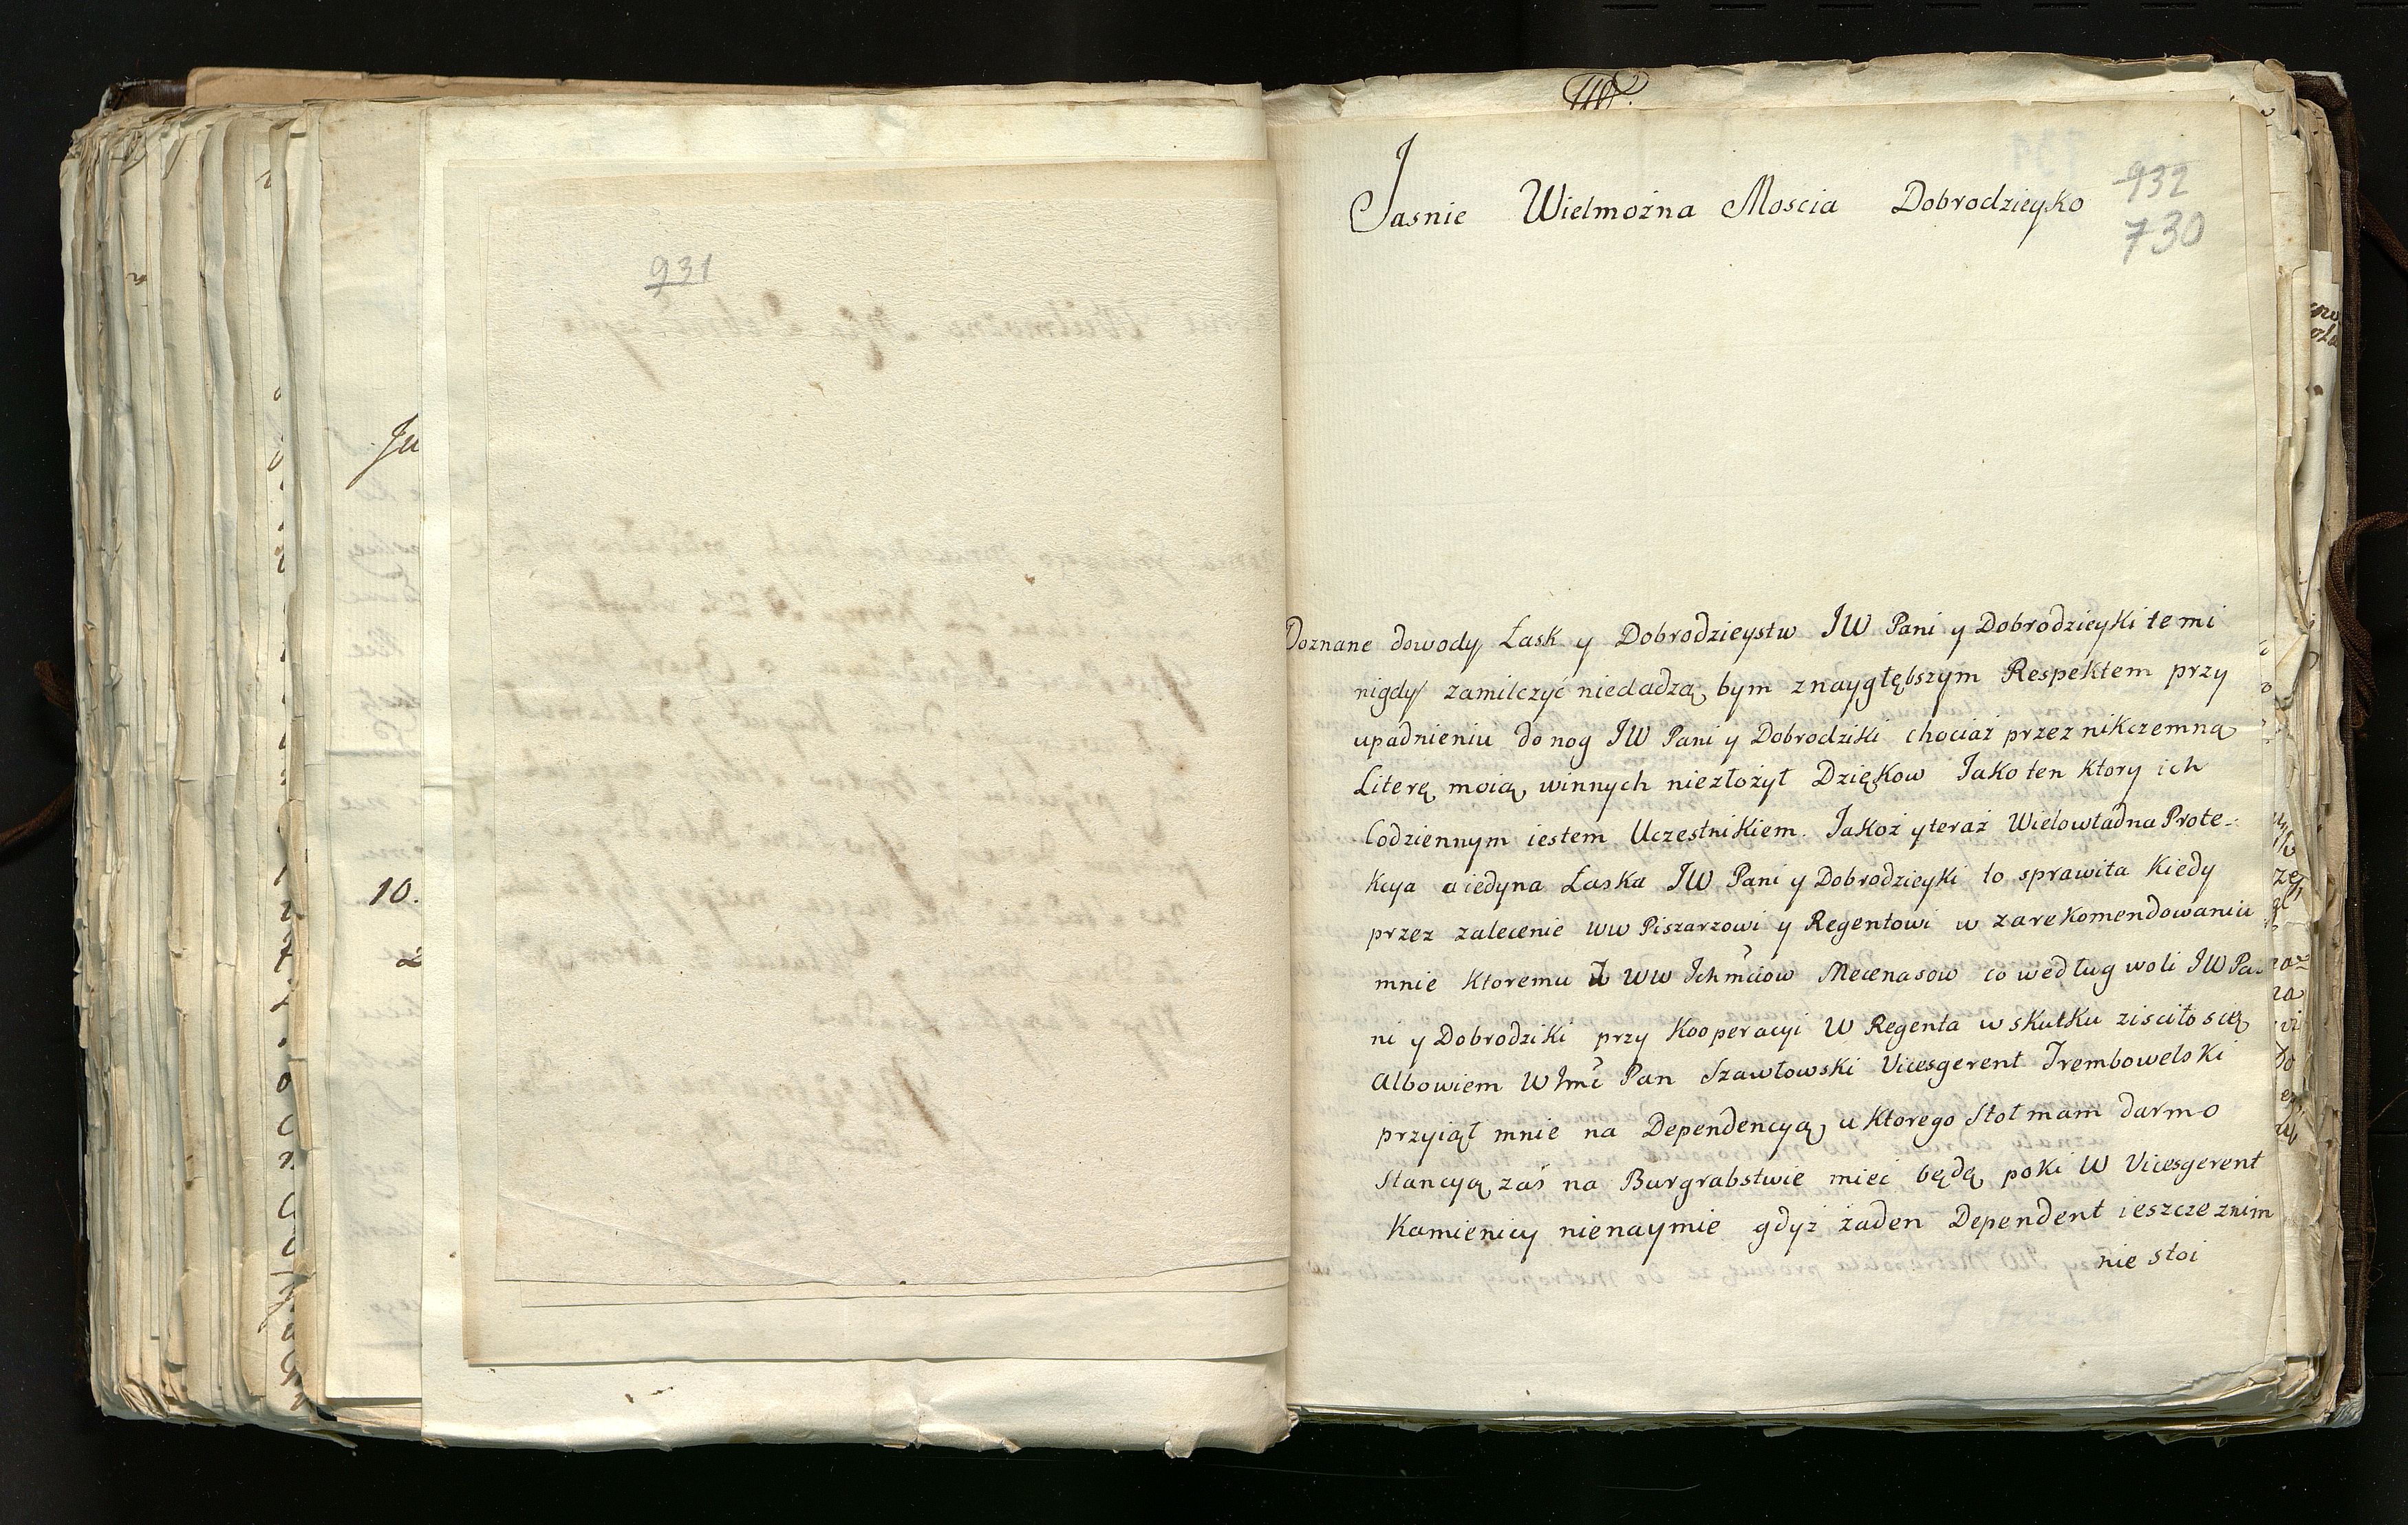 931
Ju
10.
932
730
Jasnie Wielmożna Moscia Dobrodzieyko
Doznane dowody Łask y Dobrodzieystw JW Pani y Dobrodzieyki temi
nigdy zamilczyć niedadzą, bym znaygłębszym Respektem przy
upadnieniu do nog JW Pani y Dobrodziki chociaż przez nikczemną
Literę moią winnych niezłożył Dziękow Jako ten ktory ich
Codziennym iestem Uczestnikiem. Jakoż y teraż Wielowładna Prote-
kcya aiedyna Łaska JW Pani y Dobrodzieyki to sprawiła kiedy
przez zalecenie WW Piszarzowi y Regentowi w zarekomendowaniu
mnie ktoremu z WW Ichmciow Mecenasow co według woli JW Pa-
ni y Dobrodziki przy Kooperacyi W Regenta w skutku zisciło się
Albowiem WJmć Pan Szawłowski Vicesgerent Trembowelski
przyiął mnie na Dependencyą, u Ktorego Stoł mam darmo
Stancyą zaś na Burgrabstwie mieć będę poki W Vicesgerent
Kamienicy nienaymie gdyż żaden Dependent ieszcze znim
nie stoi